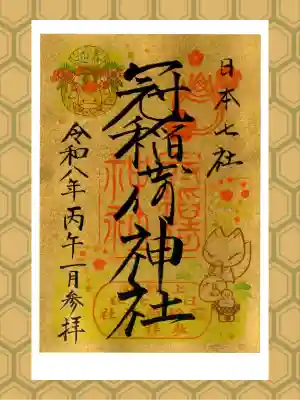 日本七社
冠稲荷神社
令和八年丙午一月参拝